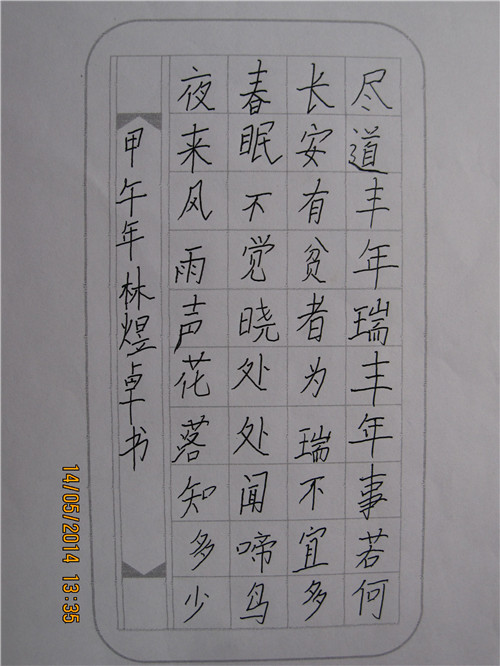 尽道丰年瑞丰年事若何
长安有贫者为瑞不宜多
春眠不觉晓处处闻啼鸟
夜来风雨声花落知多少
甲午年林煜卓书
14/05/2014 13:35